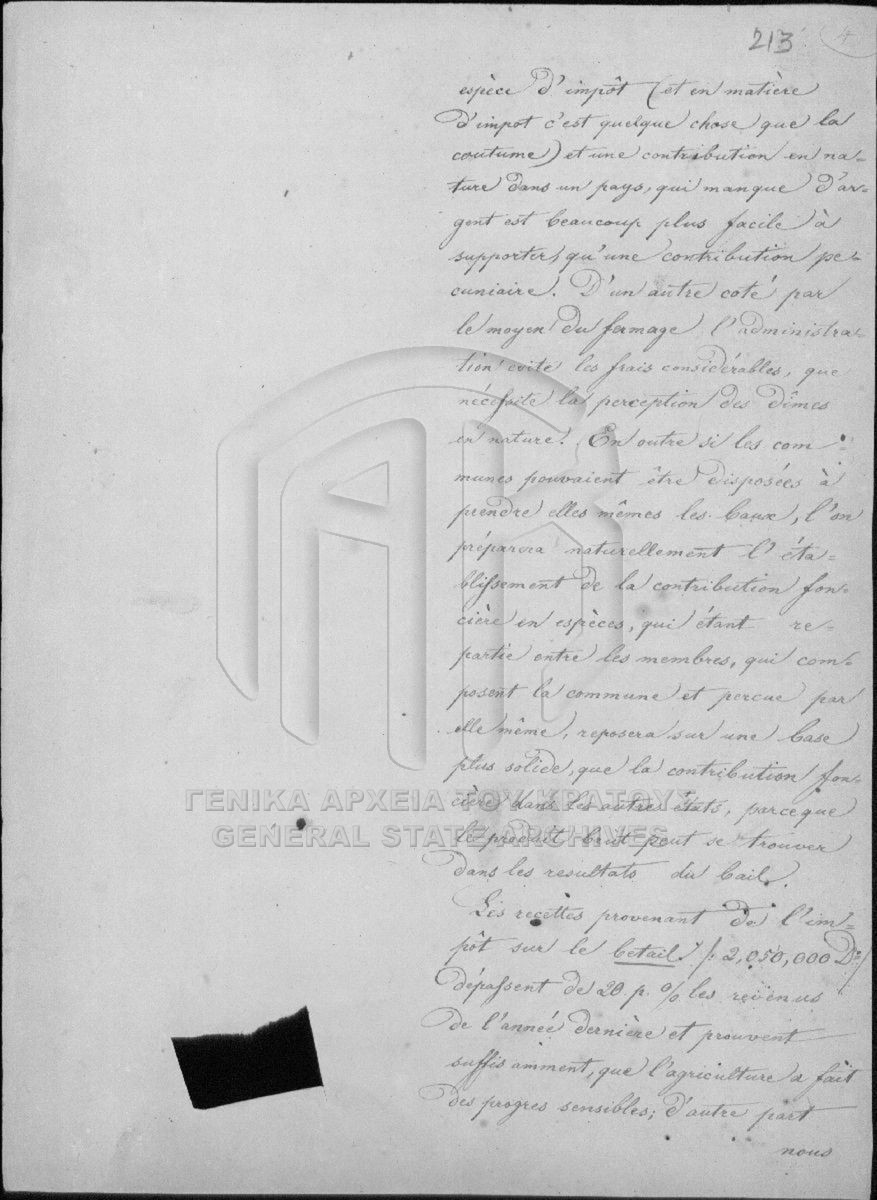 213 4
espèce d'impôt (et en matière
d'impot c'est quelque chose que la
coutume) et une contribution en na-
ture dans un pays, qui manque d'ar-
gent est beaucoup plus facile à
supporter, qu'une contribution pe-
cuniaire. D'un autre coté par
le moyen du fermage l'administra-
tion evite les frais considérables, que
nécessite la perception des dîmes
en nature. En outre si les com-
munes pouvaient être disposées à
prendre elles mêmes les baux, l'on
préparera naturellement l'éta-
blissement de la contribution fon-
cière en espèces, qui étant re-
partie entre les membres, qui com-
posent la commune et percue par
elle même, reposera sur une base
plus solide, que la contribution fon-
cière dans les autres états, parceque
ΓΕΝΙΚΑ ΑΡΧΕΙΑ ΤΟΥ ΚΡΑΤΟΥΣ
le produit brut peut se trouver
GENERAL STATE ARCHIVES
dans les resultats du bail.
Les recettes provenant de l'im-
pôt sur le betail (2,050,000 D.)
dépassent de 20 p. % les revenus
de l'année dernière et prouvent
suffisamment, que l'agriculture a fait
des progres sensibles; d'autre part
nous